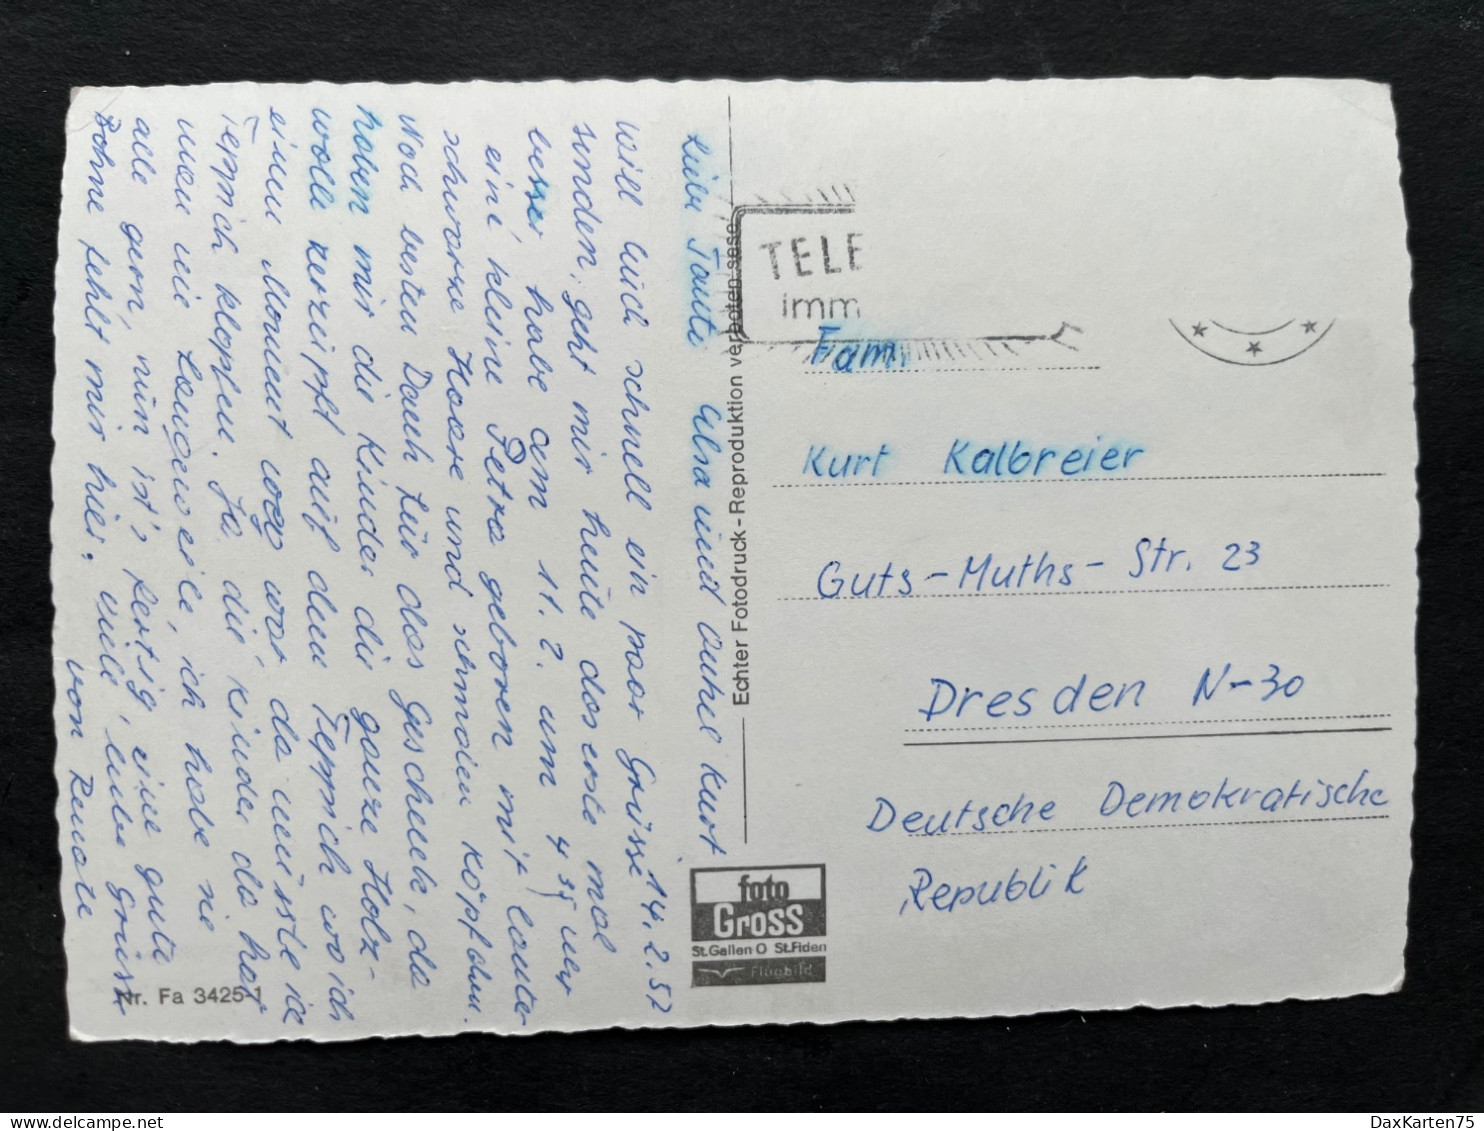 14.2.57
Liebe Tante Elsa und Onkel Kurt
will Euch schnell ein paar Grüsse
senden, geht mir heute das erste mal
besser, habe am 11.2. um 4 55 uhr
eine kleine Petra geboren mit lauter
schwarze Haare und schmalen Köpfchen.
Noch besten Dank für das Geschenk, da
haben mir die Kinder die ganze Holz-
wolle zerzipft auf dem Teppich wo ich
einen Moment weg war, da musste ich
Teppich klopfen. Ja die Kinder da hat
man nie Langeweile, ich habe sie
alle gern, nun ist's fertig, eine gute
Bohne fehlt mir hier. Viele liebe Grüsse
von Renate
Echter Fotodruck - Reproduktion verboten
TELE
imm
Fam.
Kurt Kalbreier
Guts-Muths-Str. 23
Dresden N-30
Deutsche Demokratische
Republik
foto
Gross
St. Gallen O St. Fiden
Flugbild
Nr. Fa 3425-1
DaxKarten75